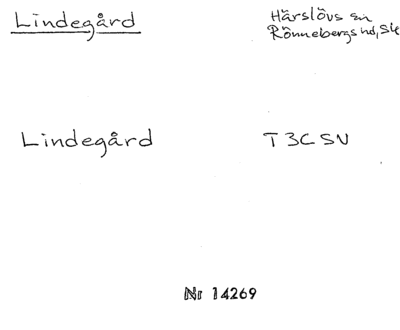 Lindegård
Härslövs sn
Rönnebergs hd, Sk
Lindegård
T3C SV
Nr 14269